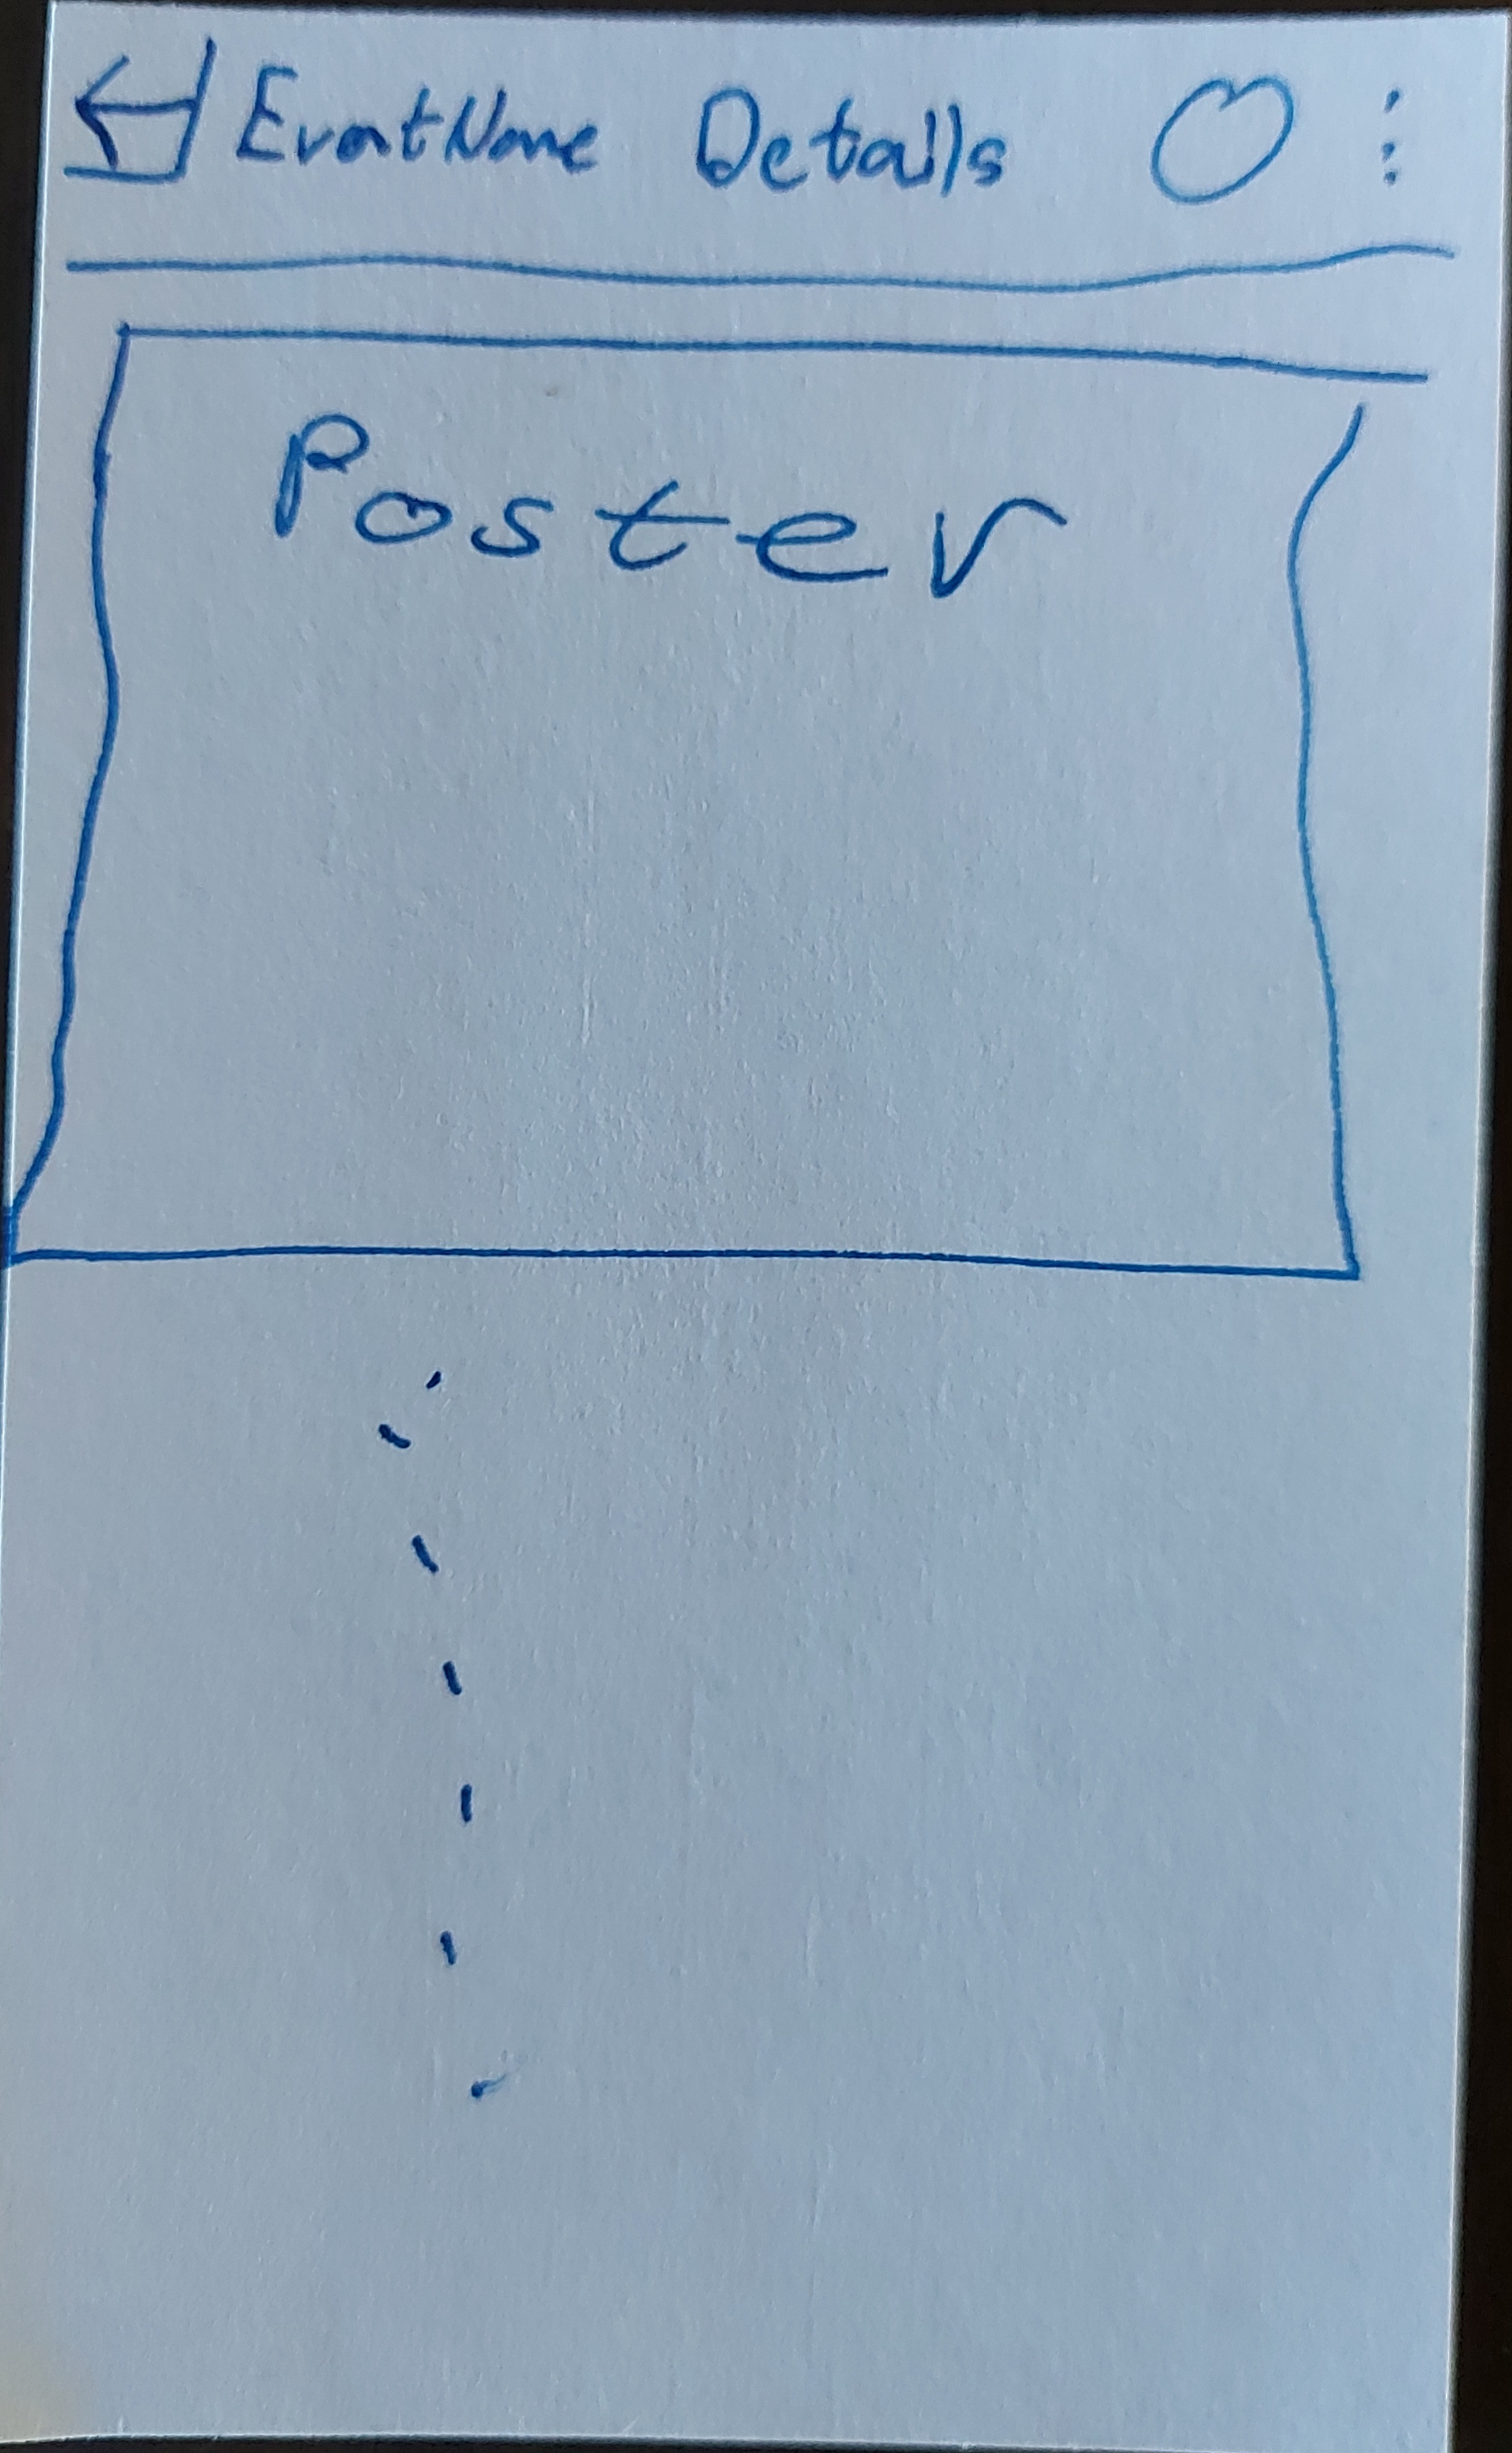 EventName Details
Poster